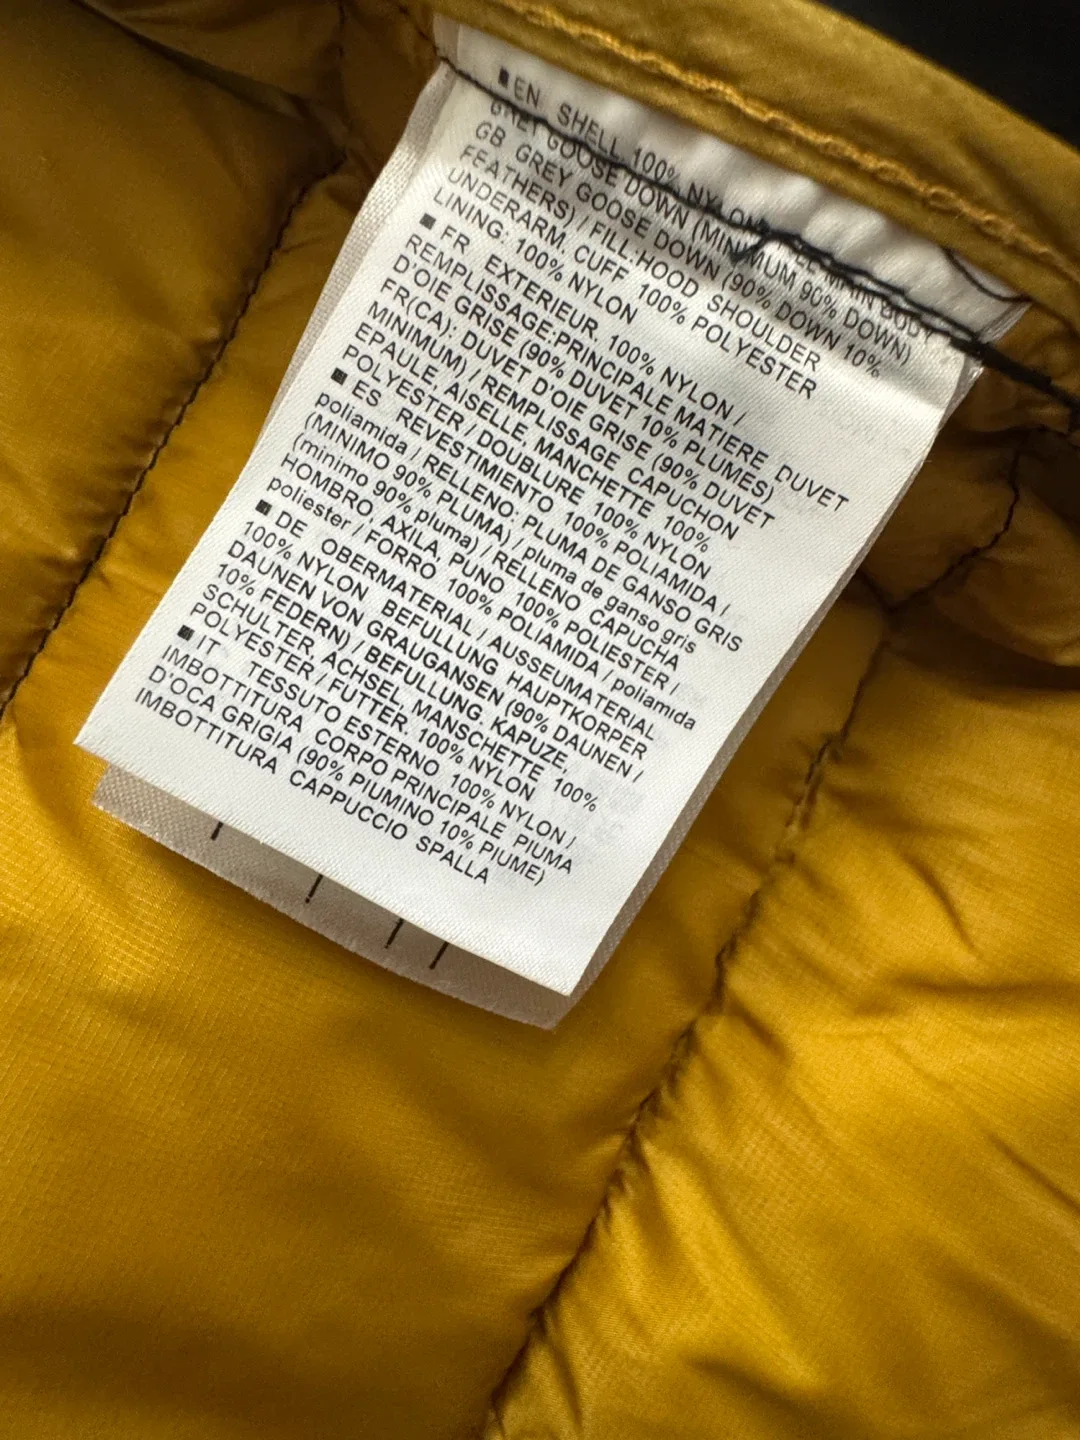 ■EN SHELL 100% NYLON FILL:MAIN BODY
GREY GOOSE DOWN (MINIMUM 90% DOWN)
GB GREY GOOSE DOWN (90% DOWN 10%
FEATHERS) / FILL:HOOD SHOULDER
UNDERARM, CUFF 100% POLYESTER
LINING: 100% NYLON
■ FR EXTERIEUR. 100% NYLON /
REMPLISSAGE:PRINCIPALE MATIERE DUVET
D'OIE GRISE (90% DUVET 10% PLUMES)
FR(CA): DUVET D'OIE GRISE (90% DUVET
MINIMUM) / REMPLISSAGE CAPUCHON
EPAULE, AISELLE, MANCHETTE 100%
POLYESTER / DOUBLURE 100% NYLON
■ ES REVESTIMIENTO 100% POLIAMIDA /
poliamida / RELLENO: PLUMA DE GANSO GRIS
(MINIMO 90% PLUMA) / pluma de ganso gris
(minimo 90% pluma) / RELLENO CAPUCHA
HOMBRO, AXILA, PUNO 100% POLIESTER /
poliester / FORRO 100% POLIAMIDA / poliamida
■ DE OBERMATERIAL / AUSSEUMATERIAL
100% NYLON BEFULLUNG HAUPTKORPER
DAUNEN VON GRAUGANSEN (90% DAUNEN /
10% FEDERN) / BEFULLUNG. KAPUZE,
SCHULTER, ACHSEL, MANSCHETTE 100%
POLYESTER / FUTTER. 100% NYLON
■ IT TESSUTO ESTERNO 100% NYLON /
IMBOTTITURA CORPO PRINCIPALE PIUMA
D'OCA GRIGIA (90% PIUMINO 10% PIUME)
IMBOTTITURA CAPPUCCIO SPALLA